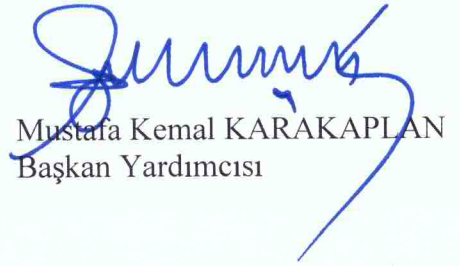 Mustafa Kemal KARAKAPLAN
Başkan Yardımcısı